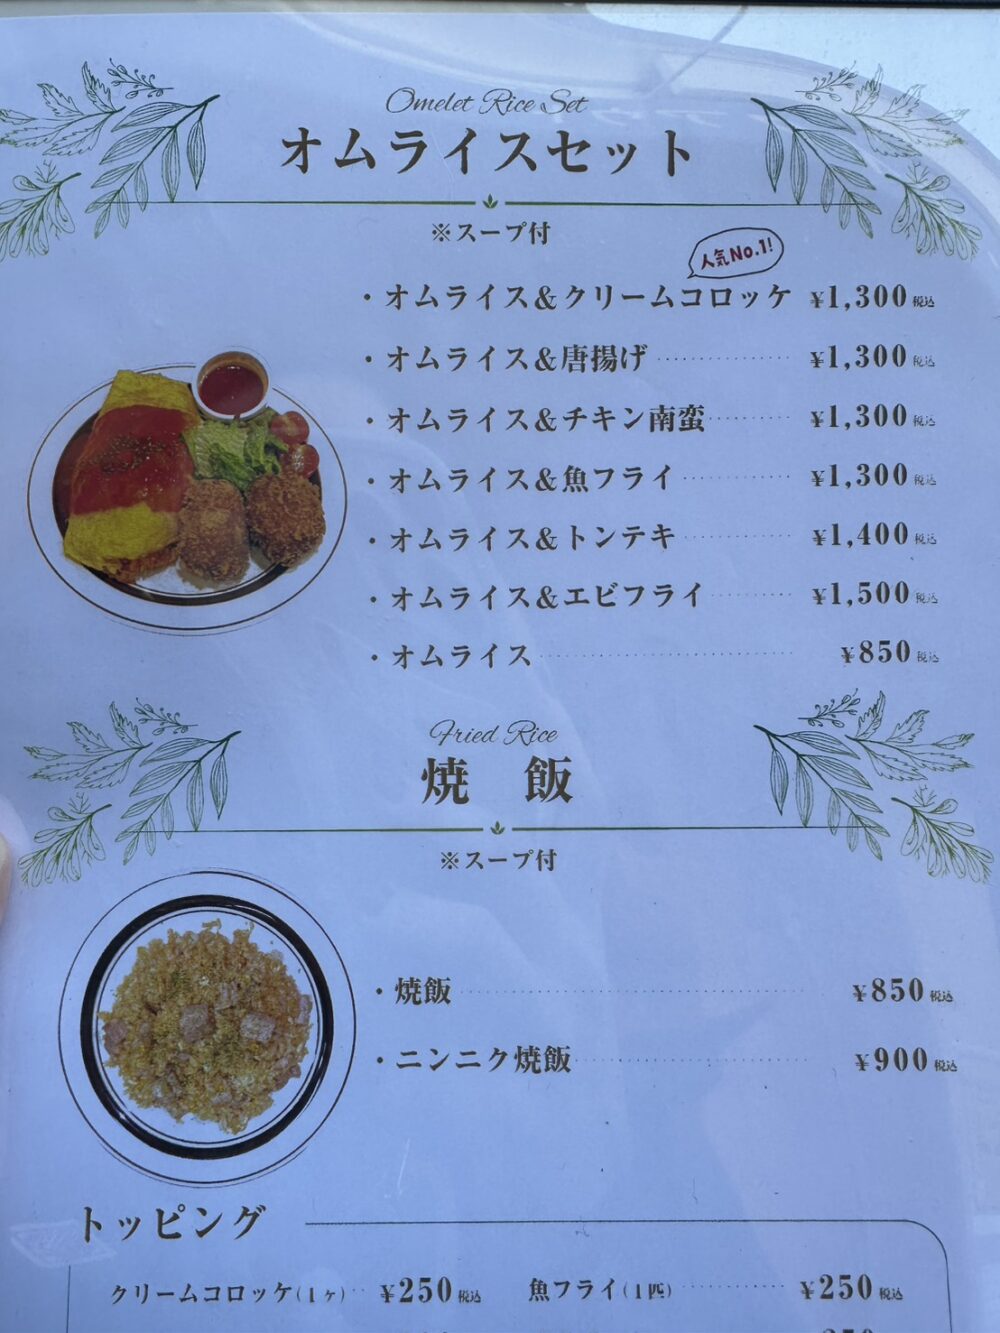 Omelet Rice Set
オムライスセット
※スープ付
人気No.1!
・オムライス&クリームコロッケ ¥1,300税込
・オムライス&唐揚げ ¥1,300税込
・オムライス&チキン南蛮 ¥1,300税込
・オムライス&魚フライ ¥1,300税込
・オムライス&トンテキ ¥1,400税込
・オムライス&エビフライ ¥1,500税込
・オムライス ¥850税込
Fried Rice
焼 飯
※スープ付
・焼飯 ¥850税込
・ニンニク焼飯 ¥900税込
トッピング
クリームコロッケ(1ヶ) ¥250税込 魚フライ(1匹) ¥250税込